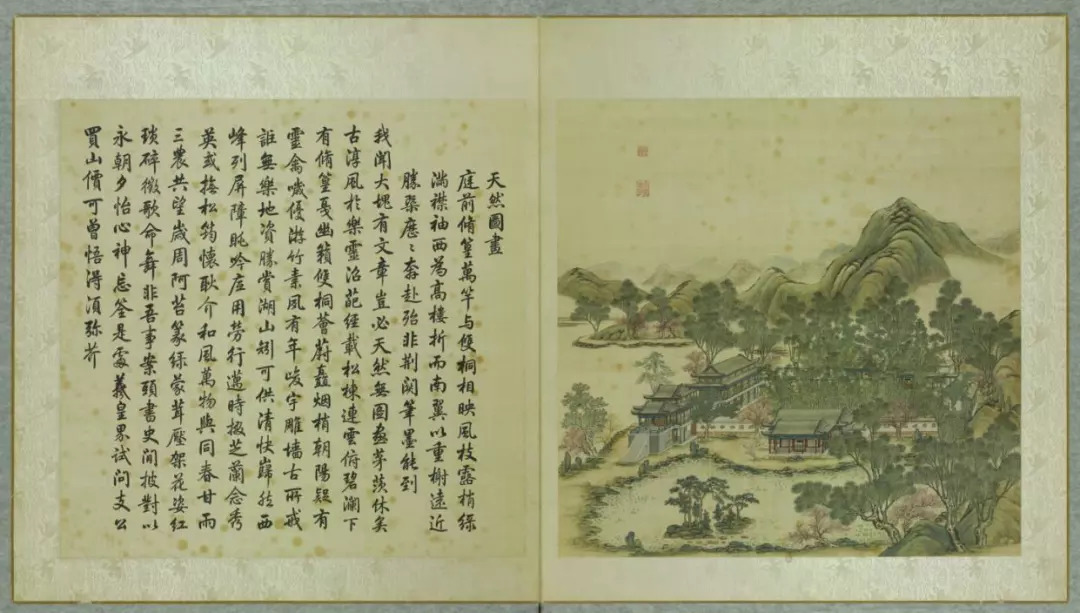 天然圖畫
庭前脩篁萬竿与雙桐相映風枝露梢綠
滿襟袖西為高樓折而南翼以重榭遠近
勝槩歷〻奔赴殆非荆関筆墨能到
我聞大塊有文章豈必天然無圖畫茅茨休矣
古淳風於樂靈沼葩經載松棟連雲俯碧瀾下
有脩篁戛幽籟雙桐薈蔚矗烟梢朝陽疑有
靈禽噦優游竹素夙有年峻宇雕墻古所戒
詎無樂地資勝賞湖山矧可供清快巋然西
峰列屏障眺吟底用勞行邁時掇芝蘭念秀
英或撫松筠懷耿介和風萬物與同春甘雨
三農共望歲周阿苔篆綠蒙茸壓架花姿紅
瑣碎徵歌命舞非吾事案頭書史閒披對以
永朝夕怡心神忘筌是處羲皇界試問支公
買山價可曾悟得須弥芥